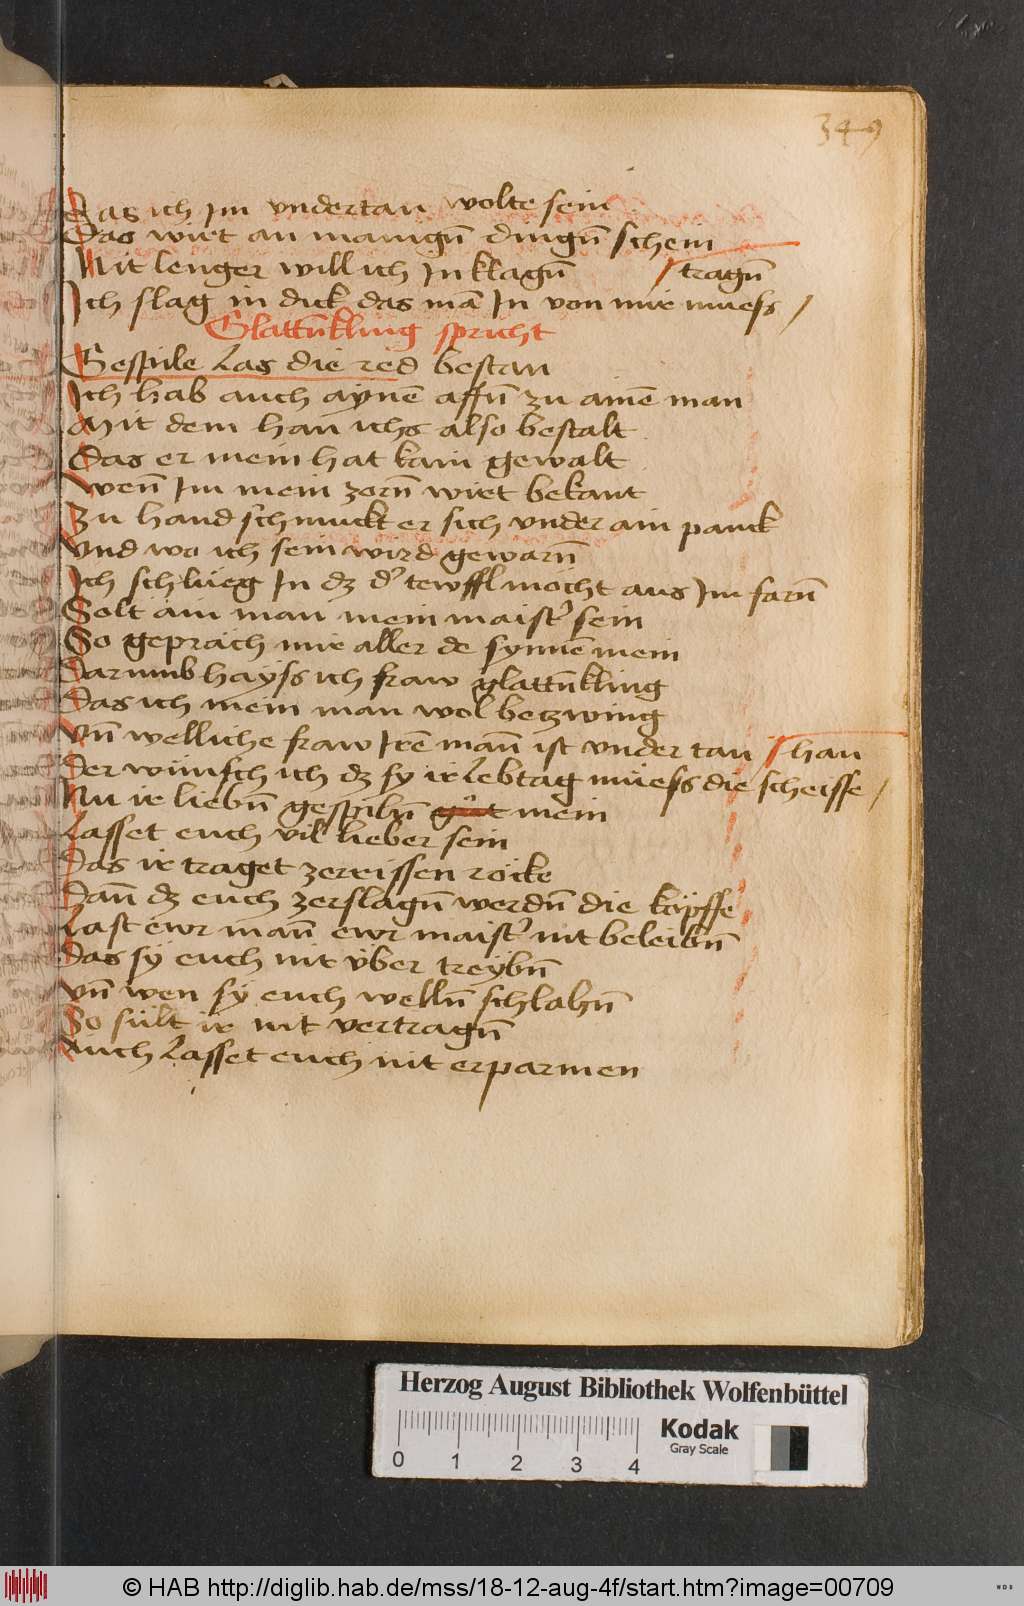 349
Das ich Im vndertan wolte sein
Das wirt an manign̄ dingn̄ schein
Nit lenger will ich In klagn̄ tragn̄
Ich slag in dick das mā In von mir muess /
Glattn̄kling spricht
Gespile Las die red bestan
Ich hab auch aynē affn̄ zu ainē man
Mit dem han ichs also bestalt
Das er mein hat kain gewalt
Wen̄ Im mein zorn̄ wirt bekant
Zu hand schmuckt er sich vnder ain panck
Vnd wo ich sein wird gewarn̄
Ich schlüeg In dz d' tewffl möcht aus Im farn̄
Solt ain man mein maist' sein
So gepräch mir aller de synnē mein
Darumb hayss ich fraw glattn̄kling
Das ich mein man wol betzwing
Vn̄ welliche fraw Irē man̄ ist vnder tan / han
Der wünsch ich dz sy ir Lebtag müess die scheisse /
Nu ir liebn̄ gespiln̄ güt mein
Lasset euch vil lieber sein
Das ir traget zerissen röcke
Dan̄ dz euch zerslagn̄ werdn̄ die köpffe
Last ewr man̄ ewr maist' nit beleibn̄
Das sÿ euch nit vber treybn̄
Vn̄ wen sÿ euch welln̄ schlahn̄
So sült ir nit vertragn̄
Auch Lasset euch nit erparmen
Herzog August Bibliothek Wolfenbüttel
Kodak
Gray Scale
0 1 2 3 4
© HAB http://diglib.hab.de/mss/18-12-aug-4f/start.htm?image=00709